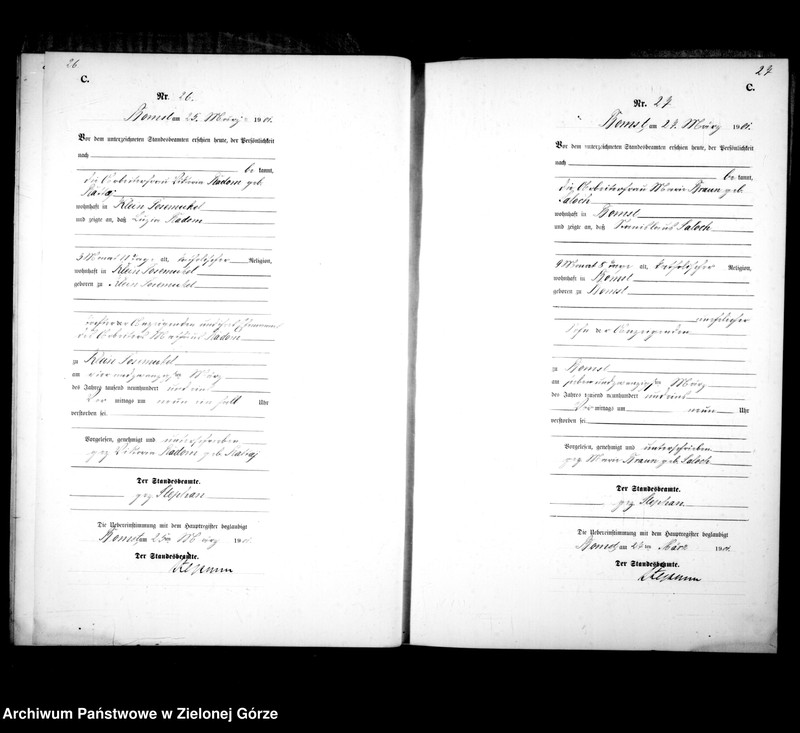 26.
C.
Nr. 26.
Bomst am 25. März 1901.
Vor dem unterzeichneten Standesbeamten erschien heute, der Persönlichkeit
nach
be kannt,
die Arbeiterfrau Radom geb.
wohnhaft in Klein Posemuckel
und zeigte an, daß Radom
5 Monat 11 Tage alt, katholischer Religion,
wohnhaft in Klein Posemuckel
geboren zu Klein Posemuckel
Tochter der Anzeigenden und
Radom
zu Klein Posemuckel
am vierundzwanzigsten März
des Jahres tausend neunhundert und eins
Vor mittags um neun ein halb Uhr
verstorben sei.
Vorgelesen, genehmigt und unterschrieben
gez. Radom geb.
Der Standesbeamte.
gez. Stephan
Die Uebereinstimmung mit dem Hauptregister beglaubigt
Bomst am 25ten März 1901.
Der Standesbeamte.
27
C.
Nr. 27
Bomst, am 27. März 1901.
Vor dem unterzeichneten Standesbeamten erschien heute, der Persönlichkeit
nach
be kannt,
die Arbeiterfrau Maria Braun geb.
Saloch
wohnhaft in Bomst
und zeigte an, daß Stanislaus Saloch
9 Monat 8 Tage alt, katholischer Religion,
wohnhaft in Bomst
geboren zu Bomst
unehelicher
Sohn der Anzeigenden
zu Bomst
am siebenundzwanzigsten März
des Jahres tausend neunhundert und eins
Vor mittags um neun Uhr
verstorben sei.
Vorgelesen, genehmigt und unterschrieben
gez. Maria Braun geb. Saloch
Der Standesbeamte.
gez. Stephan
Die Uebereinstimmung mit dem Hauptregister beglaubigt
Bomst, am 27ten März 1901.
Der Standesbeamte.
Archiwum Państwowe w Zielonej Górze